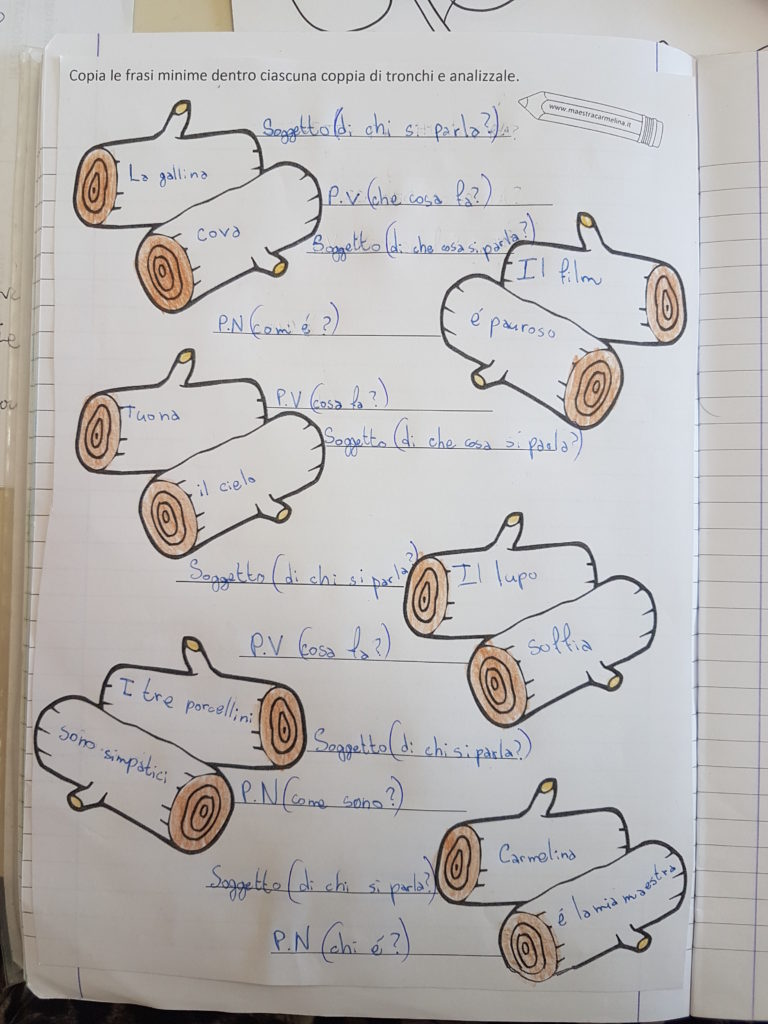 Copia le frasi minime dentro ciascuna coppia di tronchi e analizzale.
www.maestracarmelina.it
La gallina
cova
Soggetto (di chi si parla?)
P.V (che cosa fa?)
Il film
é pauroso
Soggetto (di che cosa si parla?)
P.N (com'é?)
Tuona
il cielo
P.V (cosa fa?)
Soggetto (di che cosa si parla?)
Il lupo
Soffia
Soggetto (di chi si parla?)
P.V (cosa fa?)
I tre porcellini
Sono simpatici
Soggetto (di chi si parla?)
P.N (come sono?)
Carmelina
é la mia maestra
Soggetto (di chi si parla?)
P.N (chi é?)